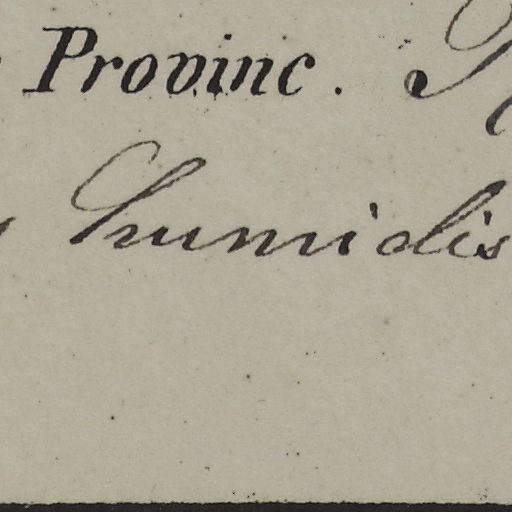 Provinc.
humidis